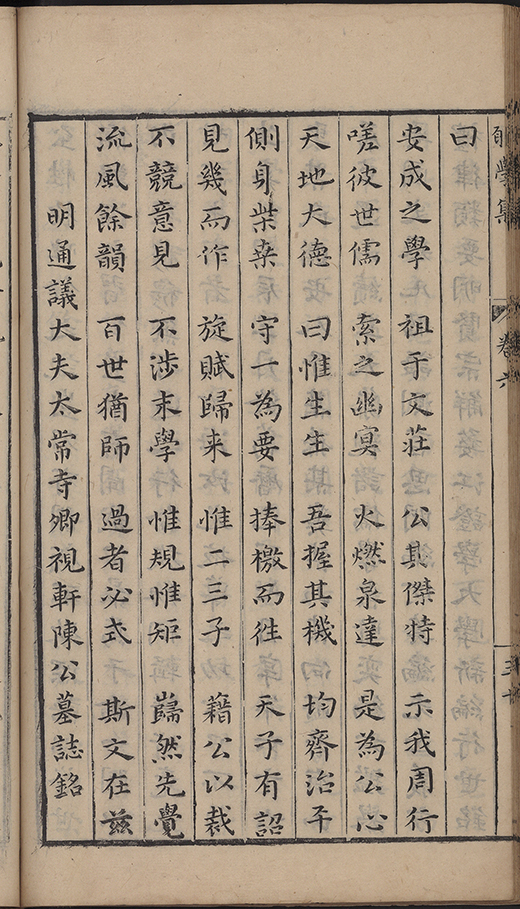 學集 卷六
曰
安成之學 祖于文莊 公其傑特 示我周行
嗟彼世儒 索之幽冥 火燃泉達 是為公心
天地大德 曰惟生生 吾握其機 均齊治平
側身柴桒 守一為要 捧檄而徃 天子有詔
見幾而作 旋賦歸来 惟二三子 藉公以裁
不競意見 不涉末學 惟規惟矩 巋然先覺
流風餘韻 百世猶師 過者必式 斯文在茲
明通議大夫太常寺卿視軒陳公墓誌銘